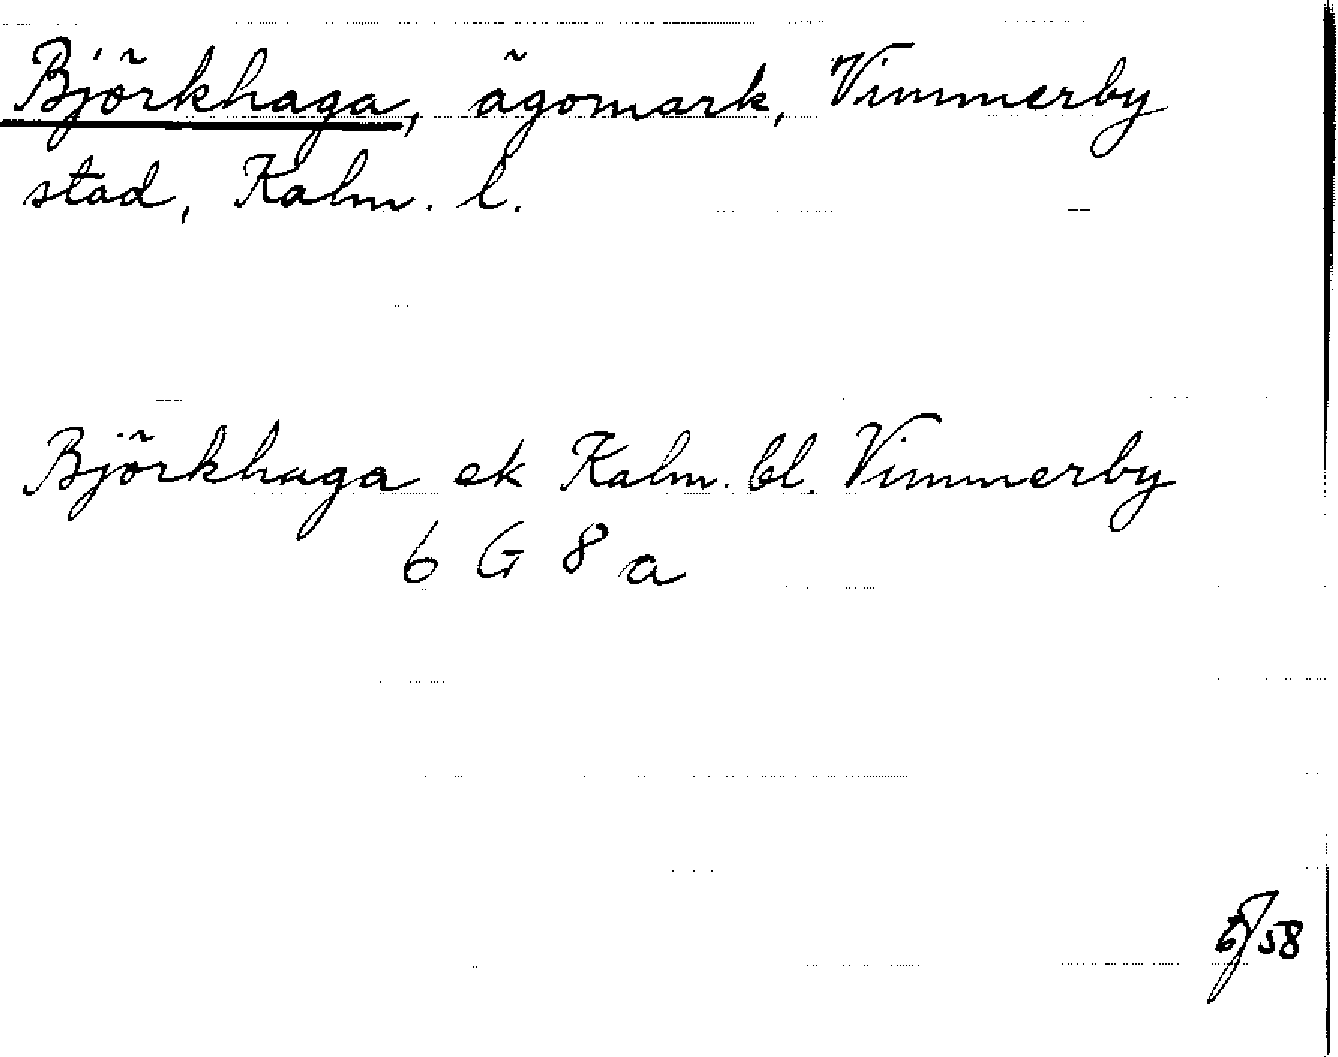 Björkhaga, ägomark, Vimmerby
stad, Kalm. l.
Björkhaga ek Kalm. bl. Vimmerby
6 G 8 a